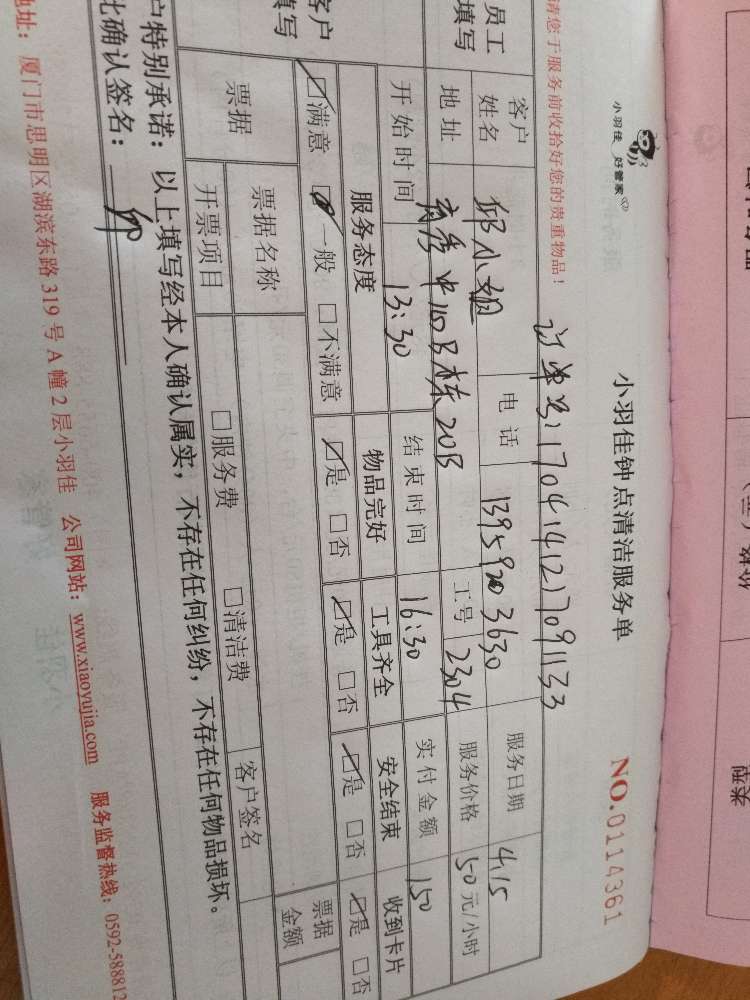 小羽佳 好管家
小羽佳钟点清洁服务单
NO.0114361
订单号:1704141217091133
请您于服务前收拾好您的贵重物品!
员工填写
客户姓名 邱小姐 电话 13959203630 服务日期 4.15
地址 中160B栋20B 工号 2304 服务价格 50元/小时
开始时间 13:30 结束时间 16:30 实付金额 150
客户填写
服务态度 物品完好 工具齐全 安全结束 收到卡片
☑满意 一般 □不满意 ☑是 □否 ☑是 □否 ☑是 □否 ☑是 □否
票据 票据名称 客户签名 票据金额
开票项目 □服务费 □清洁费
户特别承诺:以上填写经本人确认属实,不存在任何纠纷,不存在任何物品损坏。
比确认签名:邱
地址:厦门市思明区湖滨东路319号A幢2层小羽佳 公司网站:www.xiaoyujia.com 服务监督热线:0592-588812